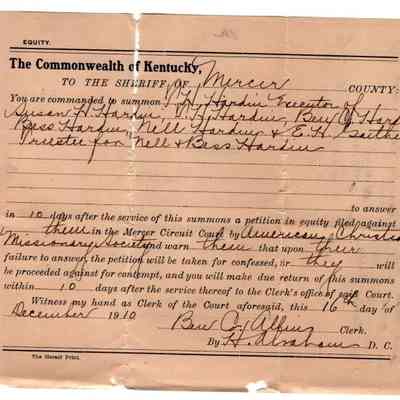 EQUITY.
The Commonwealth of Kentucky,
TO THE SHERIFF OF Mercer COUNTY:
You are commanded to summon Hardin Executor of
Susan H. Hardin, Hardin, Ben C. Hard
Bess Hardin, Nell Hardin & E. H. Gaithe
Trustee for Nell & Bess Hardin
to answer
in 10 days after the service of this summons a petition in equity filed against
them in the Mercer Circuit Court by American Christian
Missionary Society and warn them that upon their
failure to answer, the petition will be taken for confessed, or they will
be proceeded against for contempt, and you will make due return of this summons
within 10 days after the service thereof to the Clerk's office of said Court.
Witness my hand as Clerk of the Court aforesaid, this 16th day of
December 1910
Ben C. Allin Clerk.
By H. Abraham D. C.
The Herald Print.